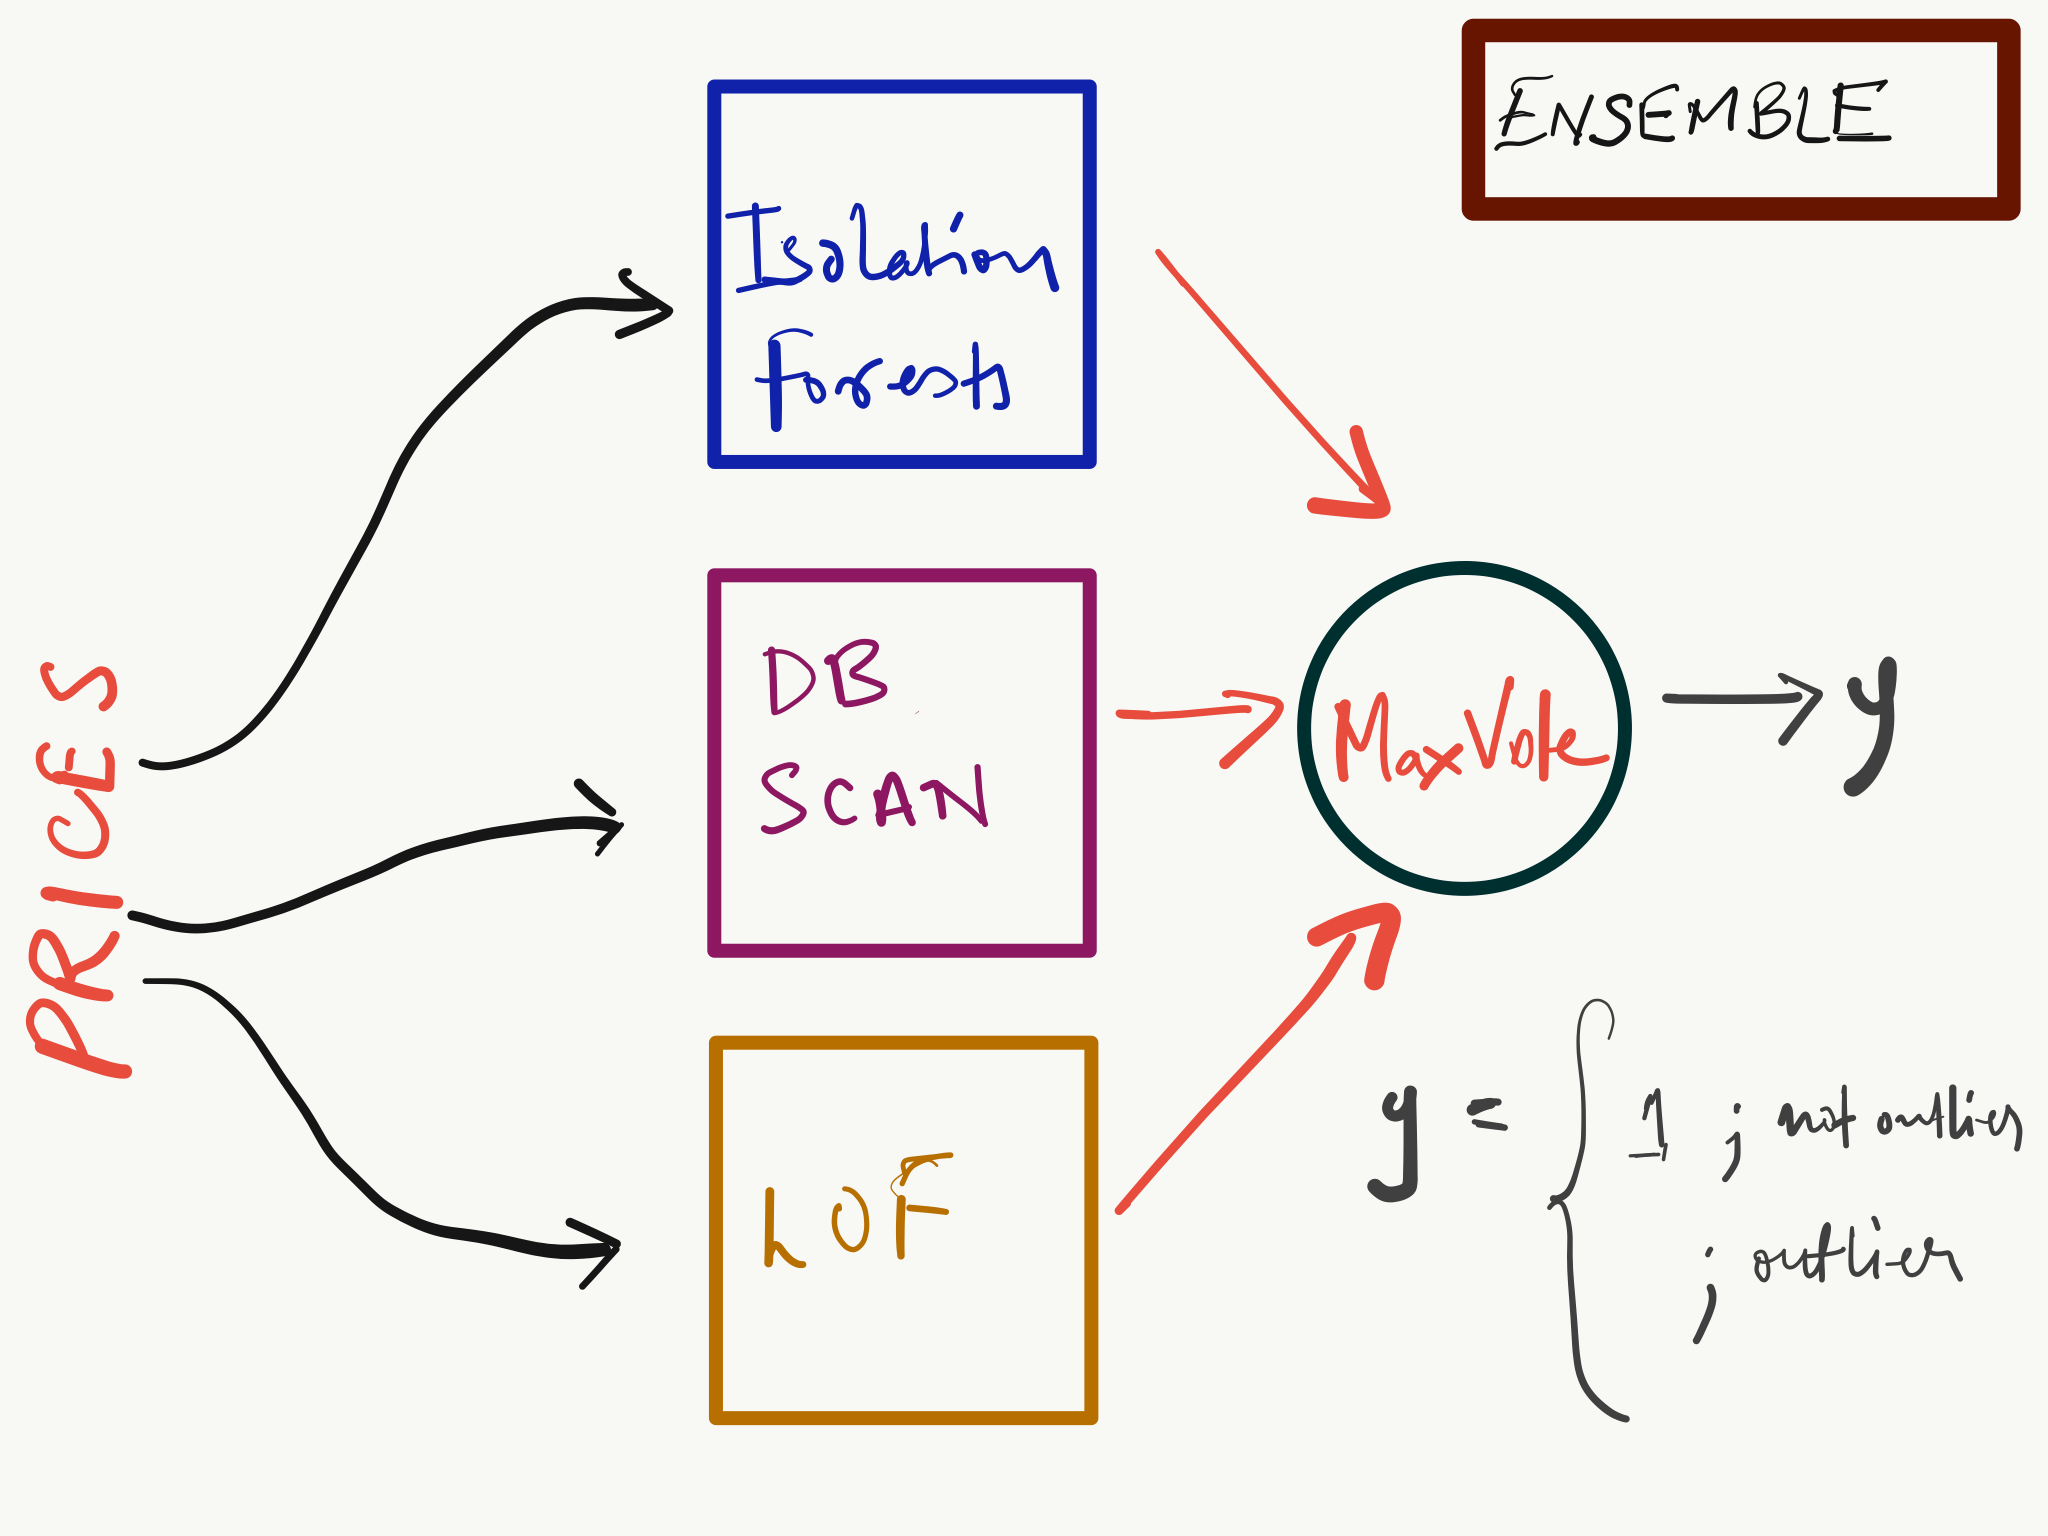 ENSEMBLE
PRICES
Isolation
Forests
DB
SCAN
LOF
MaxVote
y
y = { 1 ; not outlier
; outlier